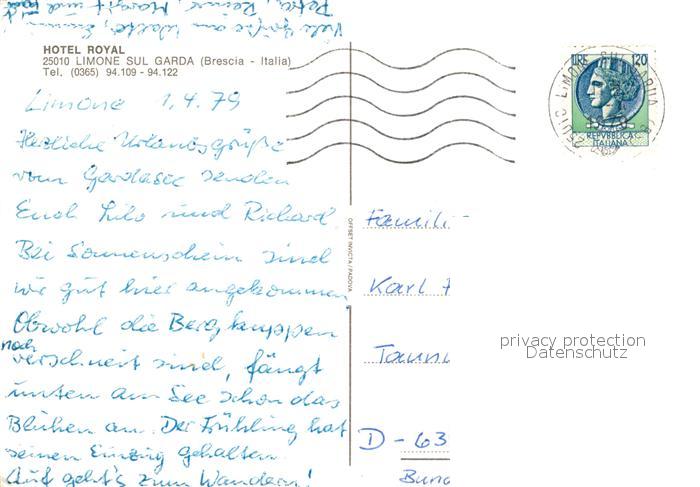 Viele Grüße an
Petra, Reiner, Margit und
HOTEL ROYAL
25010 LIMONE SUL GARDA (Brescia - Italia)
Tel. (0365) 94.109 - 94.122
Limone 1.4.79
Herzliche Urlaubsgrüße
vom Gardasee senden
Euch Lilo und Richard.
Bei Sonnenschein sind
wir gut hier angekommen.
Obwohl die Bergkuppen
noch
verschneit sind, fängt
unten am See schon das
Blühen an. Der Frühling hat
seinen Einzug gehalten.
Auf geht's zum Wandern!
OFFSET INVICTA / PADOVA
LIRE 120
REPVBBLICA
ITALIANA
Famili
Karl
Taun
D - 63
privacy protection
Datenschutz